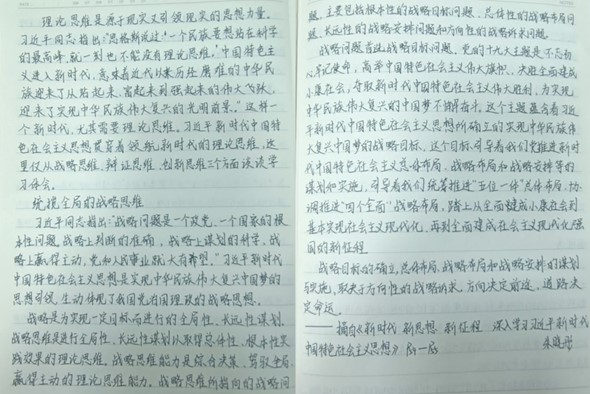 理论思维是源于现实又引领现实的思想力量。
习近平同志指出："恩格斯说过：'一个民族要想站在科学
的最高峰，就一刻也不能没有理论思维。'中国特色主
义进入新时代，意味着近代以来历经磨难的中华民
族迎来了从站起来、富起来到强起来的伟大飞跃，
迎来了实现中华民族伟大复兴的光明前景。"这样一
个新时代，尤其需要理论思维。习近平新时代中国特
色社会主义思想贯穿着领航新时代的理论思维，这
里仅从战略思维、辩证思维、创新思维三个方面谈谈学
习体会。
统揽全局的战略思维
习近平同志指出："战略问题是一个政党、一个国家的根
本性问题。战略上判断的准确，战略上谋划的科学，战
略上赢得主动，党和人民事业就大有希望。"习近平新时代
中国特色社会主义思想是实现中华民族伟大复兴中国梦的
思想引领，生动体现了我国党治国理政的战略思想。
战略是为实现一定目标而进行的全局性、长远性谋划。
战略思维是进行全局性、长远性谋划以取得总体性、根本性实
践效果的理论思维。战略思维能力是综合决策、驾驭全局
赢得主动的理论思维能力。战略思维所指向的战略问
题，主要包括根本性的战略目标问题、总体性的战略布局问
题、长远性的战略安排问题和方向性的战略诉求问题。
战略问题首是战略目标问题。党的十九大主题是不忘初
心牢记使命，高举中国特色社会主义伟大旗帜，决胜全面建成
小康社会，夺取新时代中国特色社会主义伟大胜利，为实现
中华民族伟大复兴的中国梦不懈奋斗。这个主题蕴含着习近
平新时代中国特色社会主义思想所确立的实现中华民族伟
大复兴中国梦的战略目标。这个目标，引导着我们党推进新时
代中国特色社会主义总体布局、战略布局和战略安排等的
谋划和实施，引导着我们统筹推进"五位一体"总体布局、协
调推进"四个全面"战略布局，踏上从全面建成小康社会到
基本实现社会主义现代化，再到全面建成社会主义现代化强
国的新征程
战略目标的确立，总体布局、战略布局和战略安排的谋划
与实施，取决于方向性的战略诉求。方向决定前途，道路决
定命运。
——摘自《新时代 新思想 新征程 深入学习习近平新时代
中国特色社会主义思想》